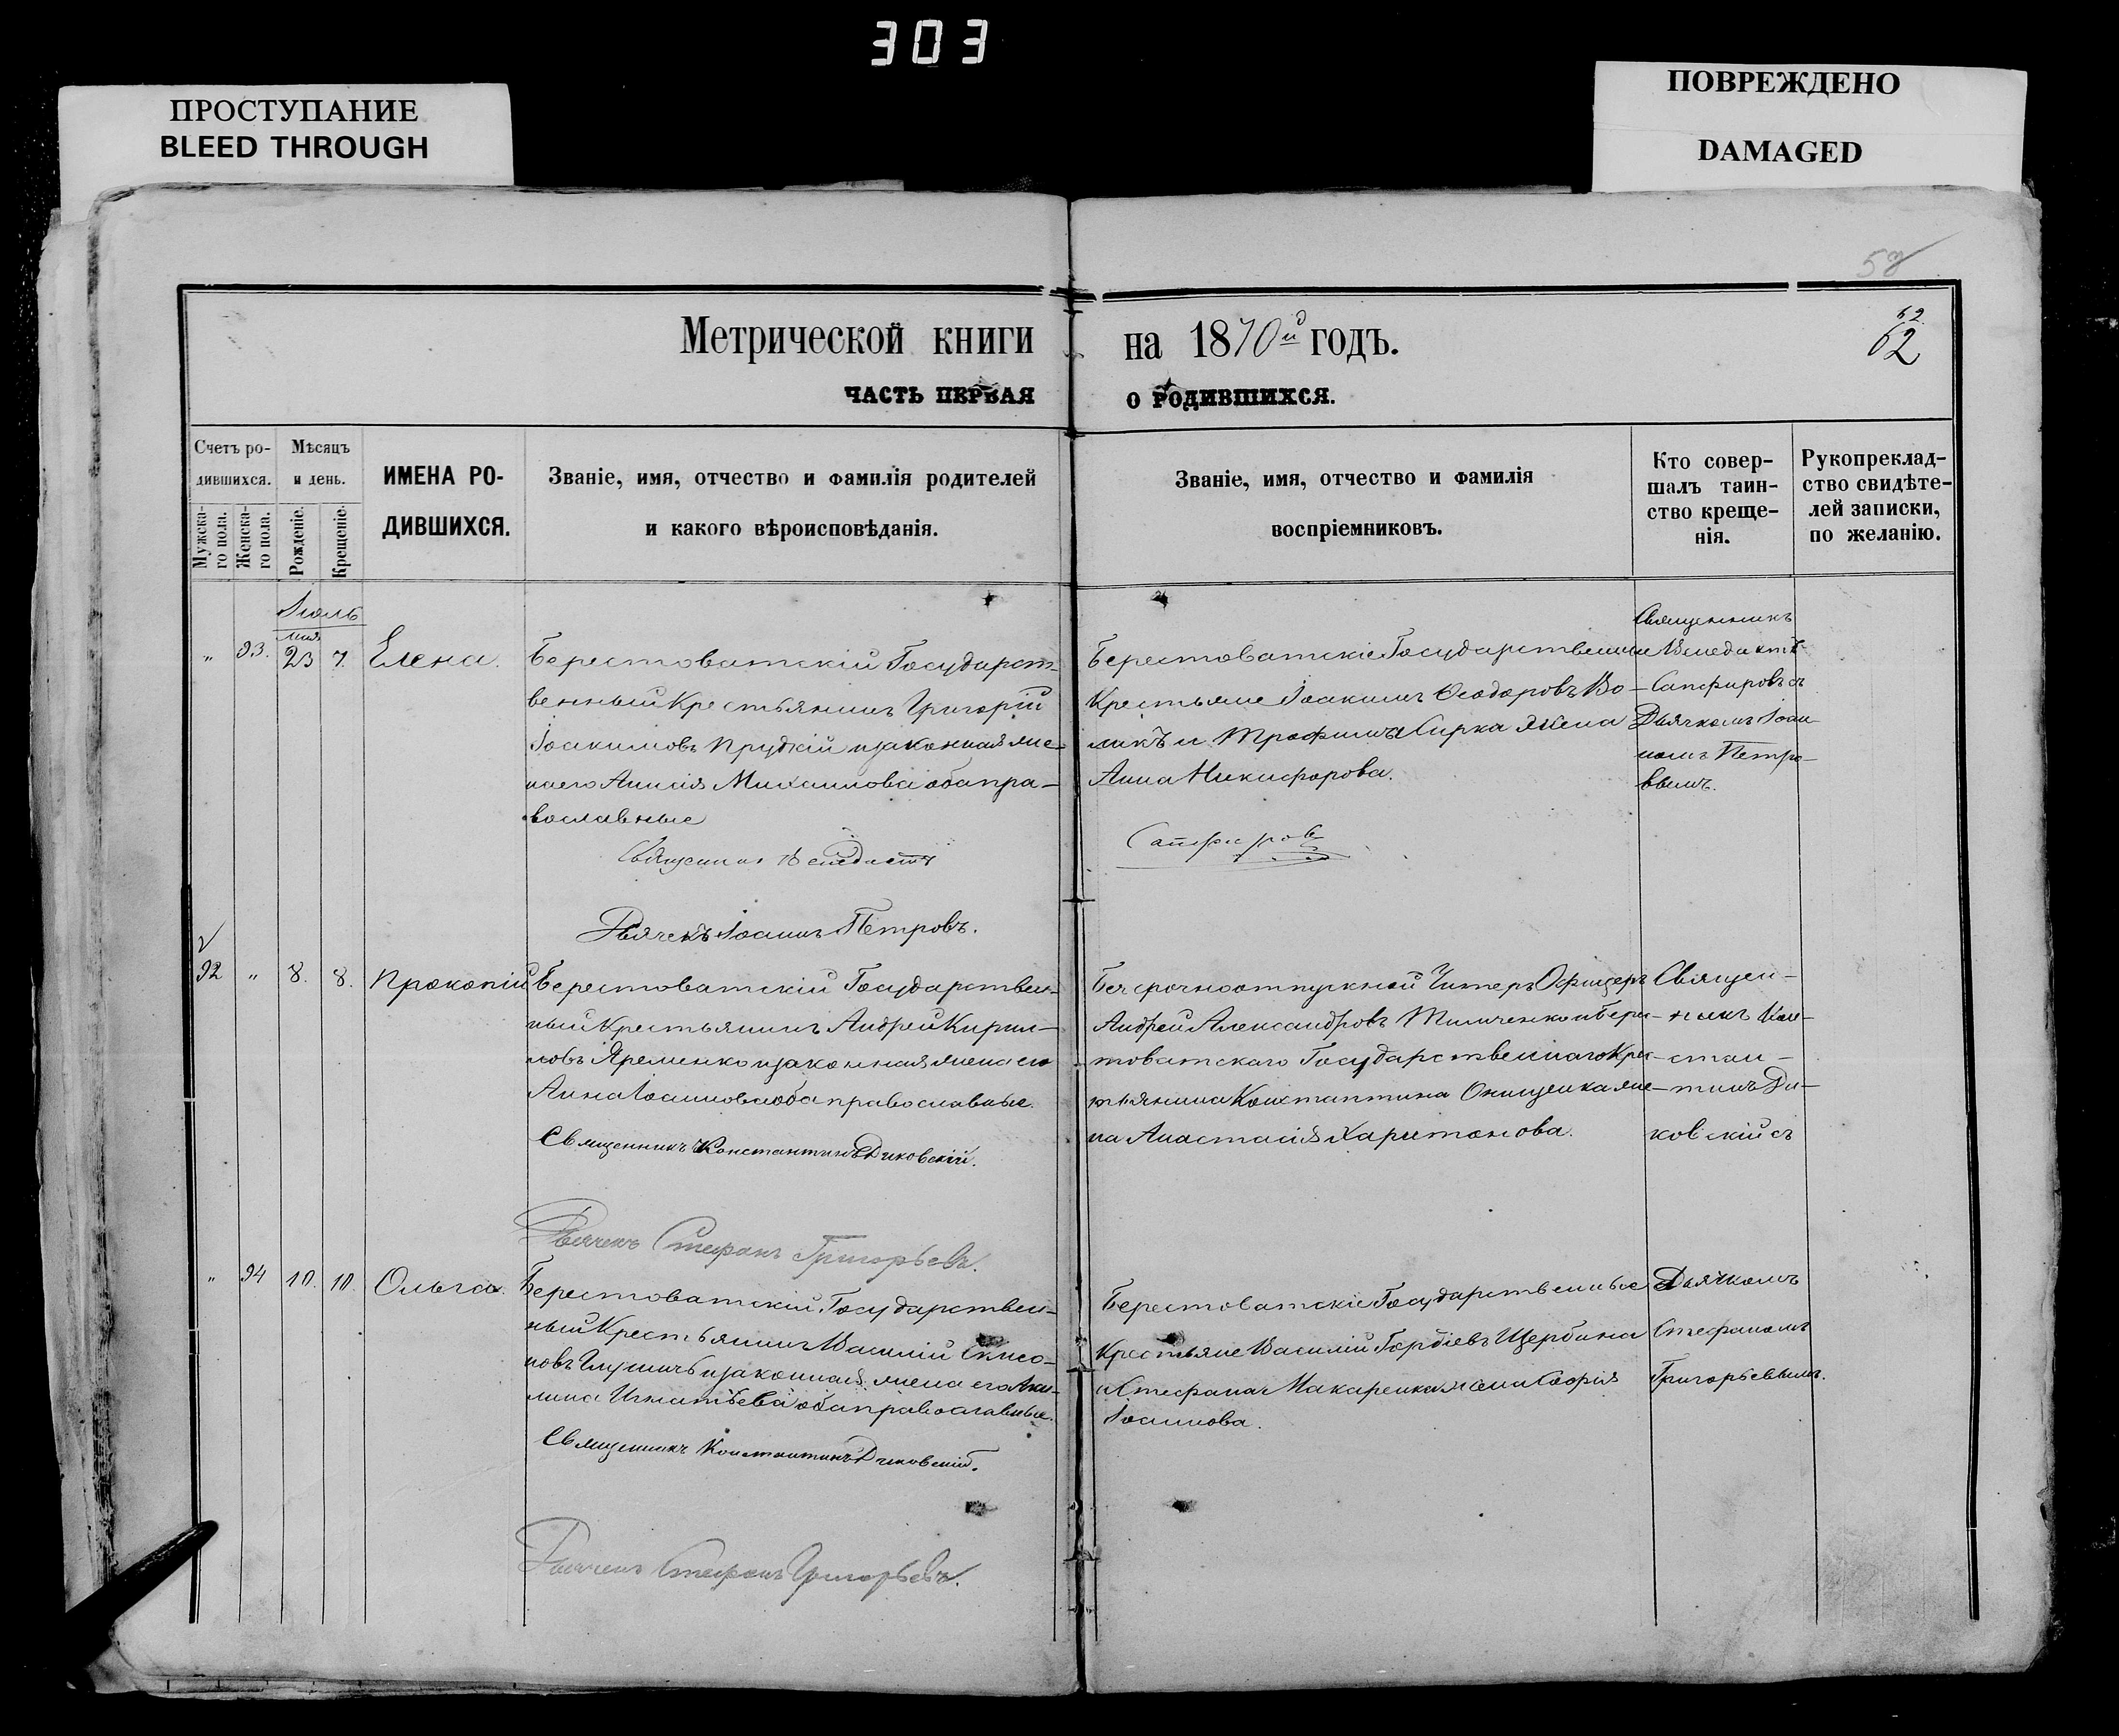 303
ПРОСТУПАНИЕ
BLEED THROUGH
ПОВРЕЖДЕНО
DAMAGED
62
62
Метрической книги на 1870й годъ.
ЧАСТЬ ПЕРВАЯ О РОДИВШИХСЯ.
Счетъ ро-
дившихся.
Мужска-
го пола.
Женска-
го пола.
Мѣсяцъ
и день.
Рожденіе.
Крещеніе.
ИМЕНА РО-
ДИВШИХСЯ.
Званіе, имя, отчество и фамилія родителей
и какого вѣроисповѣданія.
Званіе, имя, отчество и фамилія
воспріемниковъ.
Кто совер-
шалъ таин-
ство креще-
нія.
Рукопреклад-
ство свидѣте-
лей записки,
по желанію.
Іюль
" 93. 23 7. Елена.
Берестоватскій Государст-
венный Крестьянинъ Григорій
Іоакимовъ Прудкій и законная же-
на его Анисія Михаилова оба пра-
вославные
Священникъ Венедиктъ
Дьячекъ Іоаннъ Петровъ.
Берестоватскіе Государственные
Крестьяне Іоакимъ Ѳеодоровъ Во-
ликъ и Трофима Сирка жена
Анна Никифорова.
Сапфировъ
Священникъ
Венедиктъ
Сапфировъ съ
Дьячкомъ Іоан-
номъ Петро-
вымъ.
92 " 8. 8. Прокопій
Берестоватскій Государствен-
ный Крестьянинъ Андрей Кирил-
ловъ Яременко и законная жена его
Анна Іоаннова оба православные.
Священникъ Константинъ Диковскій.
Дьячекъ Стефанъ Григорьевъ.
Безсрочноотпускной Унтеръ Офицеръ
Андрей Александровъ Тимченко и Бери-
товатскаго Государственнаго Крес-
тьянина Константина Онищенка же-
на Анастасія Харитонова.
Священ-
никъ Кон-
стан-
тинъ Ди-
ковскій съ
" 94 10. 10. Ольга.
Берестоватскій Государствен-
ный Крестьянинъ Василій Симео-
новъ Глушичъ и законная жена его Аки-
лина Игнатьева оба православные.
Священникъ Константинъ Диковскій.
Дьячекъ Стефанъ Григорьевъ.
Берестоватскіе Государственные
Крестьяне Василій Гордіевъ Щербина
и Стефана Макаренка жена Софія
Іоаннова.
Дьячкомъ
Стефаномъ
Григорьевымъ.